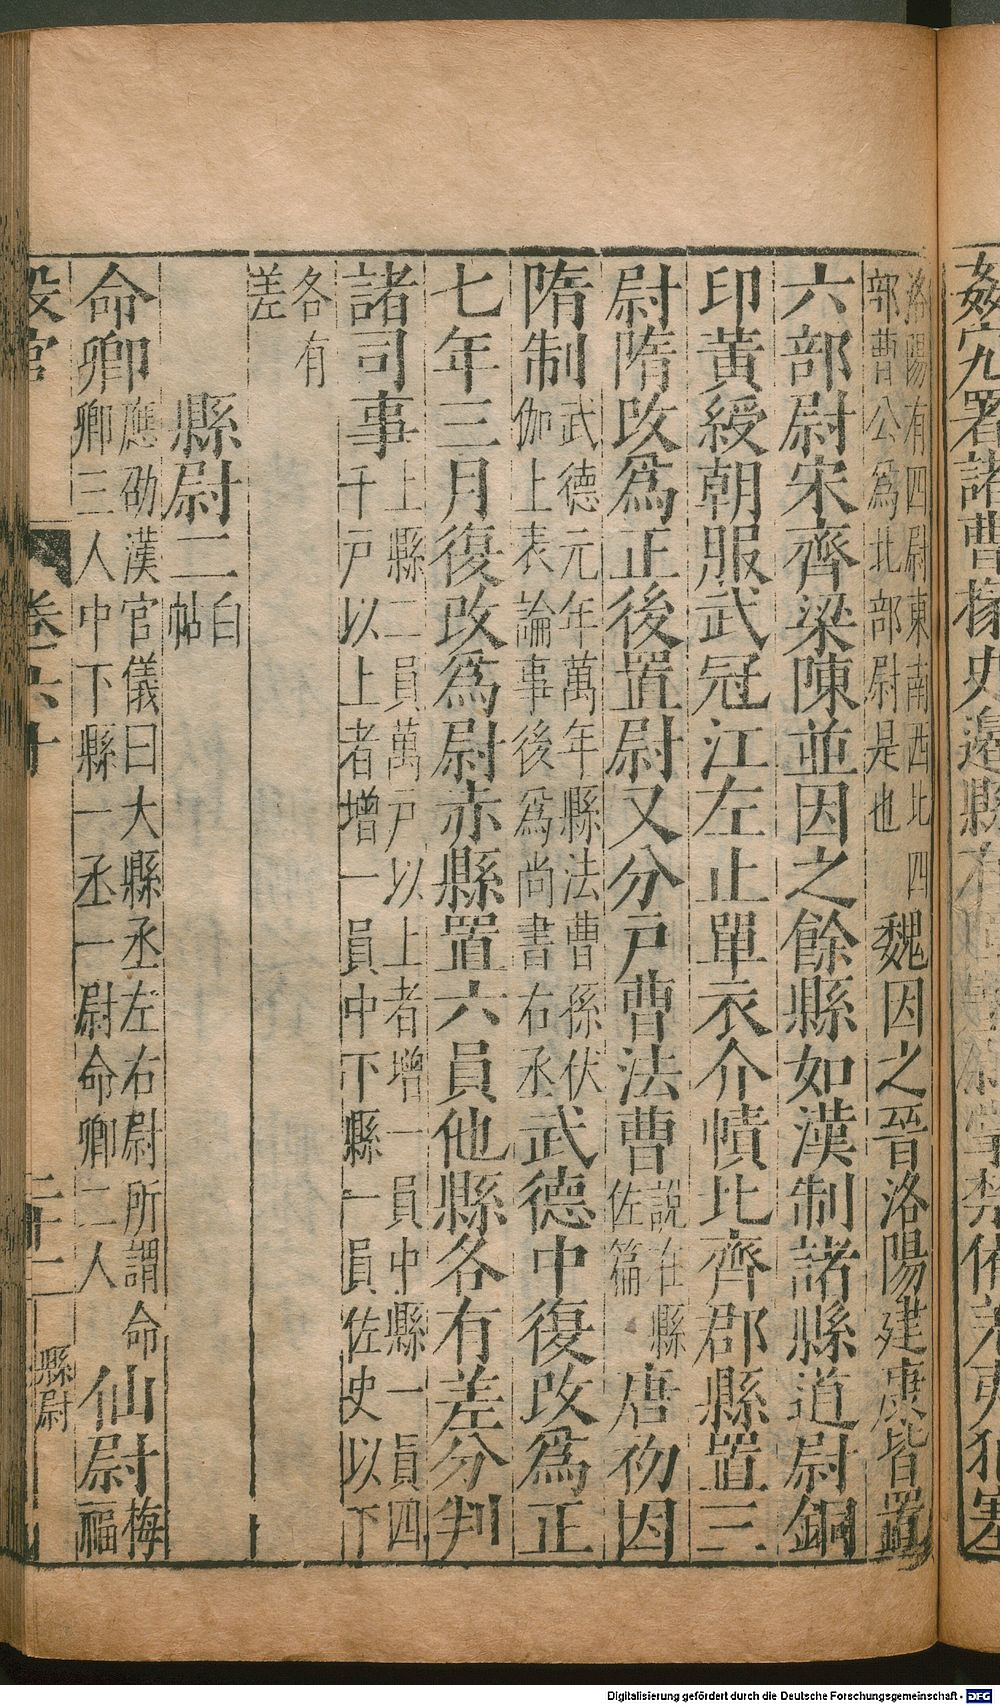 姦宄九署諸曹掾史邊縣有
洛陽有四尉東南西北四
部曹公爲北部尉是也
魏因之晉洛陽建康皆置
六部尉宋齊梁陳並因之餘縣如漢制諸縣道尉銅
印黃綬朝服武冠江左止單衣介幘北齊郡縣置三
尉隋改爲正後置尉又分戶曹法曹
說在縣
佐篇
唐初因
隋制
武德元年萬年縣法曹孫伏
伽上表論事後爲尚書右丞
武德中復改爲正
七年三月復改爲尉赤縣置六員他縣各有差分判
諸司事
上縣二員萬戶以上者增一員中縣一員四
千戶以上者增一員中下縣一員佐史以下
各有
差
縣尉二
白
帖
命卿
應劭漢官儀曰大縣丞左右尉所謂命
卿三人中下縣一丞一尉命卿二人
仙尉
梅
福
設官
卷六十
二十二
縣尉
Digitalisierung gefördert durch die Deutsche Forschungsgemeinschaft - DFG